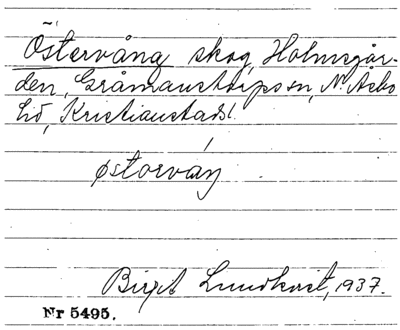 Östervång skog, Holmsgår-
den, Gråmanstorps sn, N. Åsbo
hd, Kristianstads l.
østorváŋ
Birgit Lundkvist, 1937.
Nr 5495.